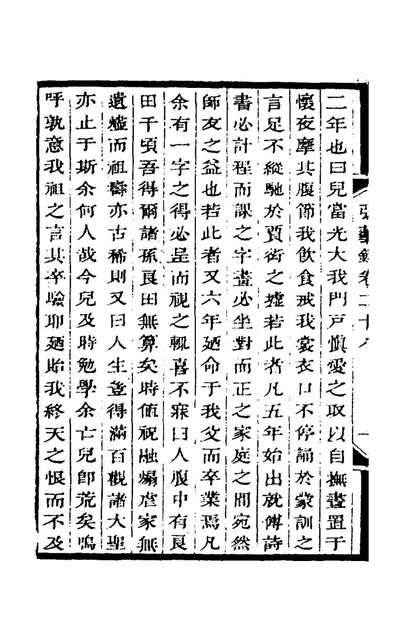 二年也曰兒當光大我門戸慎愛之取以自撫晝置于
懷夜摩其腹節我飲食戒我裳衣口不停誦於蒙訓之
言足不縱馳於賈術之墟若此者凡五年始出就傅詩
書必計程而課之字畫必坐對而正之家庭之間宛然
師友之益也若此者又六年廼命于我父而卒業焉凡
余有一字之得必呈而視之輒喜不寐曰人腹中有良
田千頃吾得爾諸孫良田無算矣時值祝融煽虐家無
遺爐而祖壽亦古稀則又曰人生豈得滿百觀諸大聖
亦止于斯余何人哉今兒及時勉學余亡兒卽荒矣嗚
呼孰意我祖之言其卒驗耶廼貽我終天之恨而不及
卷二十八
一